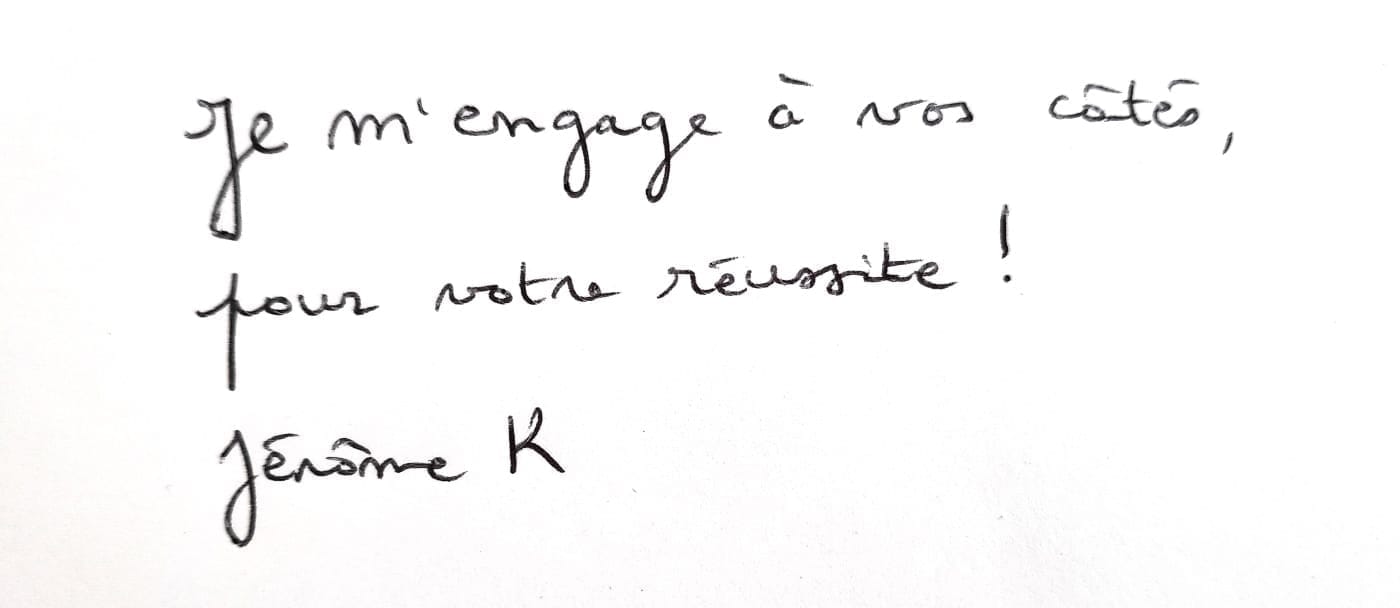 Je m'engage à vos côtés,
pour votre réussite !
Jérôme K